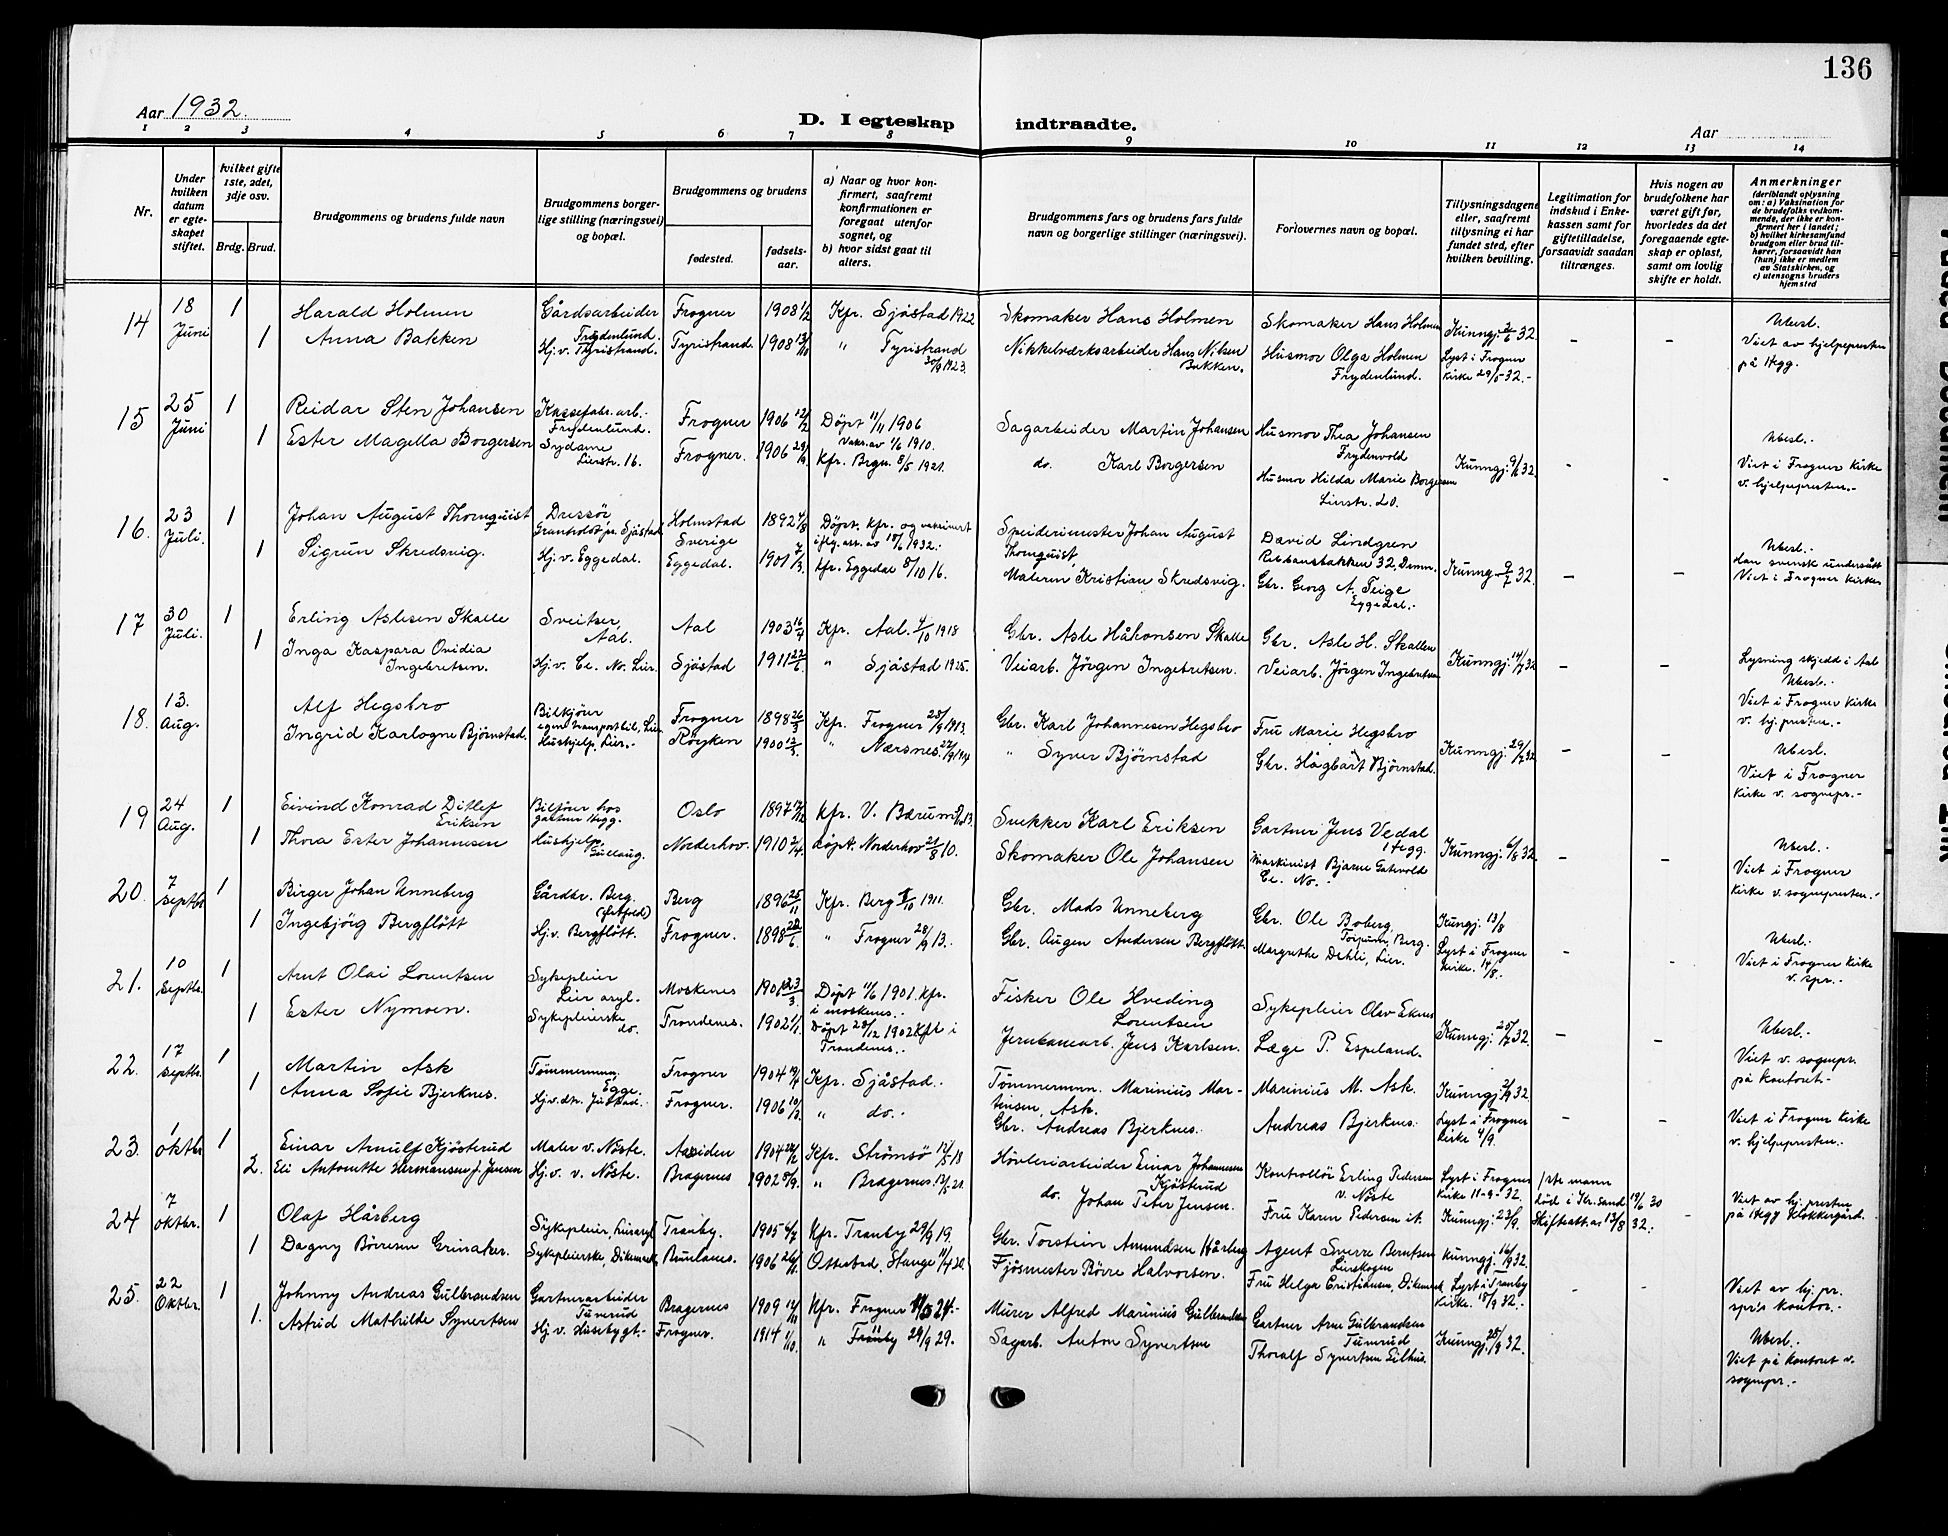 136
Aar 1932.
D. I egteskap indtraadte.
Aar
1 2 3 4 5 6 7 8 9 10 11 12 13 14
Nr.
Under hvilken datum er egte- skapet stiftet.
hvilket gifte 1ste, 2det, 3dje osv.
Brdg. Brud.
Brudgommens og brudens fulde navn
Brudgommens borger- lige stilling (næringsvei) og bopæl.
Brudgommens og brudens
fødested.
fødsels- aar.
a) Naar og hvor kon- firmert, saafremt konfirmationen er foregaat utenfor sognet, og
b) hvor sidst gaat til alters.
Brudgommens fars og brudens fars fulde navn og borgerlige stillinger (næringsvei).
Forlovernes navn og bopæl.
Tillysningsdagene eller, saafremt tillysning ei har fundet sted, efter hvilken bevilling.
Legitimation for indskud i Enke- kassen samt for giftetilladelse, forsaavidt saadan tiltrænges.
Hvis nogen av brudefolkene har været gift før, hvorledes da det foregaaende egte- skap er opløst, samt om lovlig skifte er holdt.
Anmerkninger (deriblandt oplysning om: a) Vaksination for de brudefolks vedkom- mende, der ikke er kon- firmert her i landet; b) hvilket kirkesamfund brudgom eller brud til- hører, forsaavidt han (hun) ikke er medlem av Statskirken, og c) utensogns bruders hjemsted
14 18 Juni 1 Harald Holmen Gårdsarbeider Frydenlund. Frogner 1908 1/2 Kfr. Sjåstad 1922 Skomaker Hans Holmen Skomaker Hans Holmen Kunngj. 2/6 32. - - Ubesl.
1 Anna Bakken Hj. v. Tyristrand. Tyristrand. 1908 13/10 " Tyristrand 30/9 1923. Nikkelverksarbeider Hans Nilsen Bakken. Husmor Olga Holmen Frydenlund. Lyst i Frogner kirke 29/5-32.- Viet av hjelpepresten på Hegg.
15 25 Juni 1 Reidar Sten Johansen Kassefabr. arb.- Frydenlund. Frogner 1906 12/2 Døpt 11/11 1906 Vaks. av 1/6 1910. Sagarbeider Martin Johansen Husmor Thea Johansen Frydenvold Kunngj. 9/6 32. - - Ubesl.-
1 Ester Magella Borgersen Sydame Lierstr. 16. Frogner. 1906 29/9 Kfr. Brgn. 8/5 1921. do. Karl Borgersen Husmor Hilda Marie Borgersen Lierstr. 20. Viet i Frogner kirke v. hjelpepresten.-
16. 23 Juli. 1 Johan August Thornquist Dressør Sjåstad Holmstad Sverige 1892 Døpt, kfr. og vaksinert iflg. att. av 18/6 1932. Johan August Thornquist, David Lindgren 32, Drmn. Kunng. 9/7 32. - - Ubesl.- Han svensk undersått
1 Sigrun Skredsvig. Hj. v. Eggedal. Eggedal. 1901 7/3. Kfr. Eggedal 8/10 16. Maleren Kristian Skredsvig. Gbr. Georg A. Teige Eggedal.- Viet i Frogner kirke
17 30 Juli. 1 Erling Aslesen Skalle Sveitser, Aal. Aal 1903 16/4 Kfr. Aal. 4/10 1918 Gbr. Asle Håkonsen Skalle Gbr. Asle H. Skallen Kunngj. 14/7 32 - - Lysning skjedd i Aal Ubesl.-
1 Inga Kaspara Ovidia Ingebretsen. Hj. v. Ce. No. Lier. Sjåstad 1911 22/6. " Sjåstad 1925. Veiarb. Jörgen Ingebretsen. Veiarb. Jörgen Ingebretsen Viet i Frogner kirke v. hj. presten.-
18. 13. Aug. Alf Hegsbro Bilkjører egen transportbil, Lier Frogner 1898 26/3 Kfr. Frogner 28/9 1913. Gbr. Karl Johannesen Hegsbro Fru Marie Hegsbro Kunngj. 29/7 32. - - Ubesl.
Ingrid Karlogne Bjørnstad. Hushjelp, Lier.- Røyken 1900 12/3. " Nærsnes. 27/9 1914 " Syver Bjørnstad Gbr. Hågbart Bjørnstad. Viet i Frogner kirke v. sognepr.-
19 24 Aug. 1 Eivind Konrad Ditlef Eriksen Bilfører hos gartner Hegg. Oslo 1897 17/12 Kfr. V. Bærum Snekker Karl Eriksen Gartner Jens Vedal Hegg. Kunngj. 6/8 32. - - Ubesl.-
1 Thora Ester Johannesen Hushjelp, Gullaug. Norderhov. 1910 2/4. døpt. Norderhov 21/8 10. Skomaker Ole Johansen Maskinist Bjarne Ce. No.- Viet i Frogner kirke v. sognepresten.-
20. 7 septbr. 1 Birger Johan Unneberg Gårdbr. Berg. Berg 1896 25/11 Kfr. Berg 1911. Gbr. Mads Unneberg Gbr. Ole Boberg, Berg. Kungj. 13/8 - - Ubesl.-
1 Ingebjörg Bergflött Hj. v. Bergflött. Frogner. 1898 22/6. " Frogner 28/9 13.- Gbr. Augen Andersen Bergflött. Margrethe Dehli, Lier. Lyst i Frogner kirke. 14/8. Viet i Frogner kirke v. spr.-
21. 10 septbr. 1 Arnt Olai Lorentsen Sykepleier Lier asyl. Moskenes 1901 23/3. Døpt 11/6 1901. Kfr. i moskenes.- Fisker Ole Hveding Lorentsen Sykepleier Olav Eknes Kunngj. 25/7 32. - - Ubesl.-
1 Ester Nymoen. Sykepleierske do. Trondenes. 1902 1/1. Døpt 28/12 1902 Kft i Trondenes.- Jernbanearb. Jens Karlsen. Læge P. Espeland. Viet v. sognepr. på kontoret.-
22. 17 septbr. 1 Martin Ask Tømmermnn. Egge. Frogner 1904 19/4 Kfr. Sjåstad.- Tømmermnn. Marinius Mar- tinsen, Ask. Marinius M. Ask. Kunngj. 2/9 32. - -
1 Anna Sofie Bjerknes. Hj. v. dtr. Justad. Frogner. 1906 20/2. " do.- Gbr. Andreas Bjerknes. Andreas Bjerknes. Lyst i Frogner kirke 4/9. Viet i Frogner kirke v. hjelpepresten.-
23. 1 oktbr. 1 Einar Arnulf Kjøsterud Maler v. Nøste. Asviden 1904 24/2 Kfr. Strömsö 12/5-18 Hövleriarbeider Einar Johannesen Kjøsterud Kontrollör Erling Pedersen v. Nøste Lyst i Frogner kirke 11-9-32. 1ste mann død i Kr.sand 19/6 30
2. Eli Antonette Hermansen f. Jensen Hj. v. v. Nøste. Bragernes 1902 8/9. " Bragernes. 13/5-21. do. Johan Peter Jensen. Fru Karen Pedersen it. Kunngj. 23/9. Skifteatt. av 13/8 32.- Viet av hj. presten på Hegg Klokkergård.
24 7 oktbr. 1 Olaf Hårberg Sykepleier, Lierasyl Tranby. 1905 6/7 Kfr. Tranby 29/9 19. Gbr. Torstein Amundsen Hårberg Agent Sverre Berntsen Lierskogen Kunngj. 16/9 32. -
1 Dagny Börresen Grinaker. Sykepleierske, Dikemark Brunlanes. 1906 26/11. Ottestad, Stange 11/4 20. Fjösmester Börre Halvorsen. Fru Helga Cristiansen, Dikemark Lyst i Tranby kirke. 18/9 32.- - - Viet av hj. pr. spr.s kontor.-
25. 22 Oktbr. 1 Johnny Andreas Gulbrandsen Gartnerarbeider Tuverud Bragernes 1909 17/11 Kfr. Frogner 24.- Murer Alfred Marinius Gulbrandsen Gartner Arne Gulbrandsen Tuverud Kunngj. 28/9 32. Ubesl.-
1. Astrid Mathilde Syvertsen Hj. v. Husebygt.- Frogner. 1914 1/10. " Tranby 29/9 29. Sagarb. Anton Syvertsen Thoralf Syvertsen Lilhus. Viet på kontoret v. sognepr.-